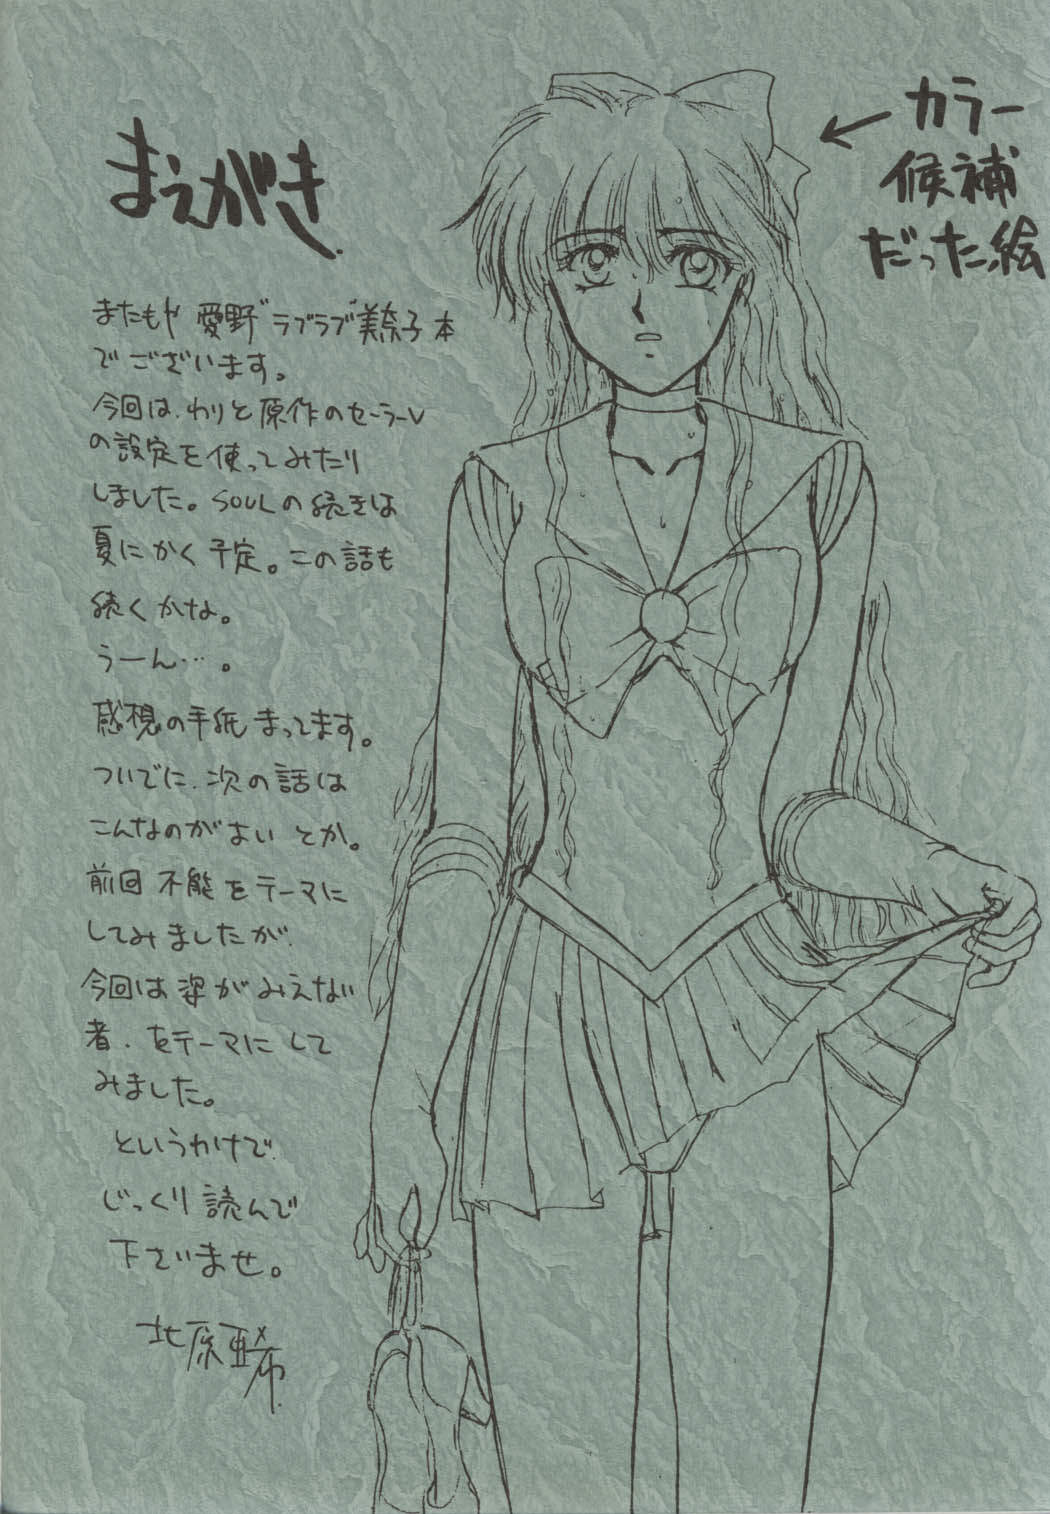 まえがき
またもや 愛野"ラブラブ"美奈子 本
でございます。
今回は、わりと原作のセーラーV
の設定を使ってみたり
しました。SOULの続きは
夏にかく予定。この話も
続くかな。
うーん…。
感想の手紙まってます。
ついでに、次の話は
こんなのがよいとか。
前回不能をテーマに
してみましたが、
今回は姿がみえない
者、をテーマにして
みました。
というわけで、
じっくり読んで
下さいませ。
北原亜希
← カラー
候補
だった絵